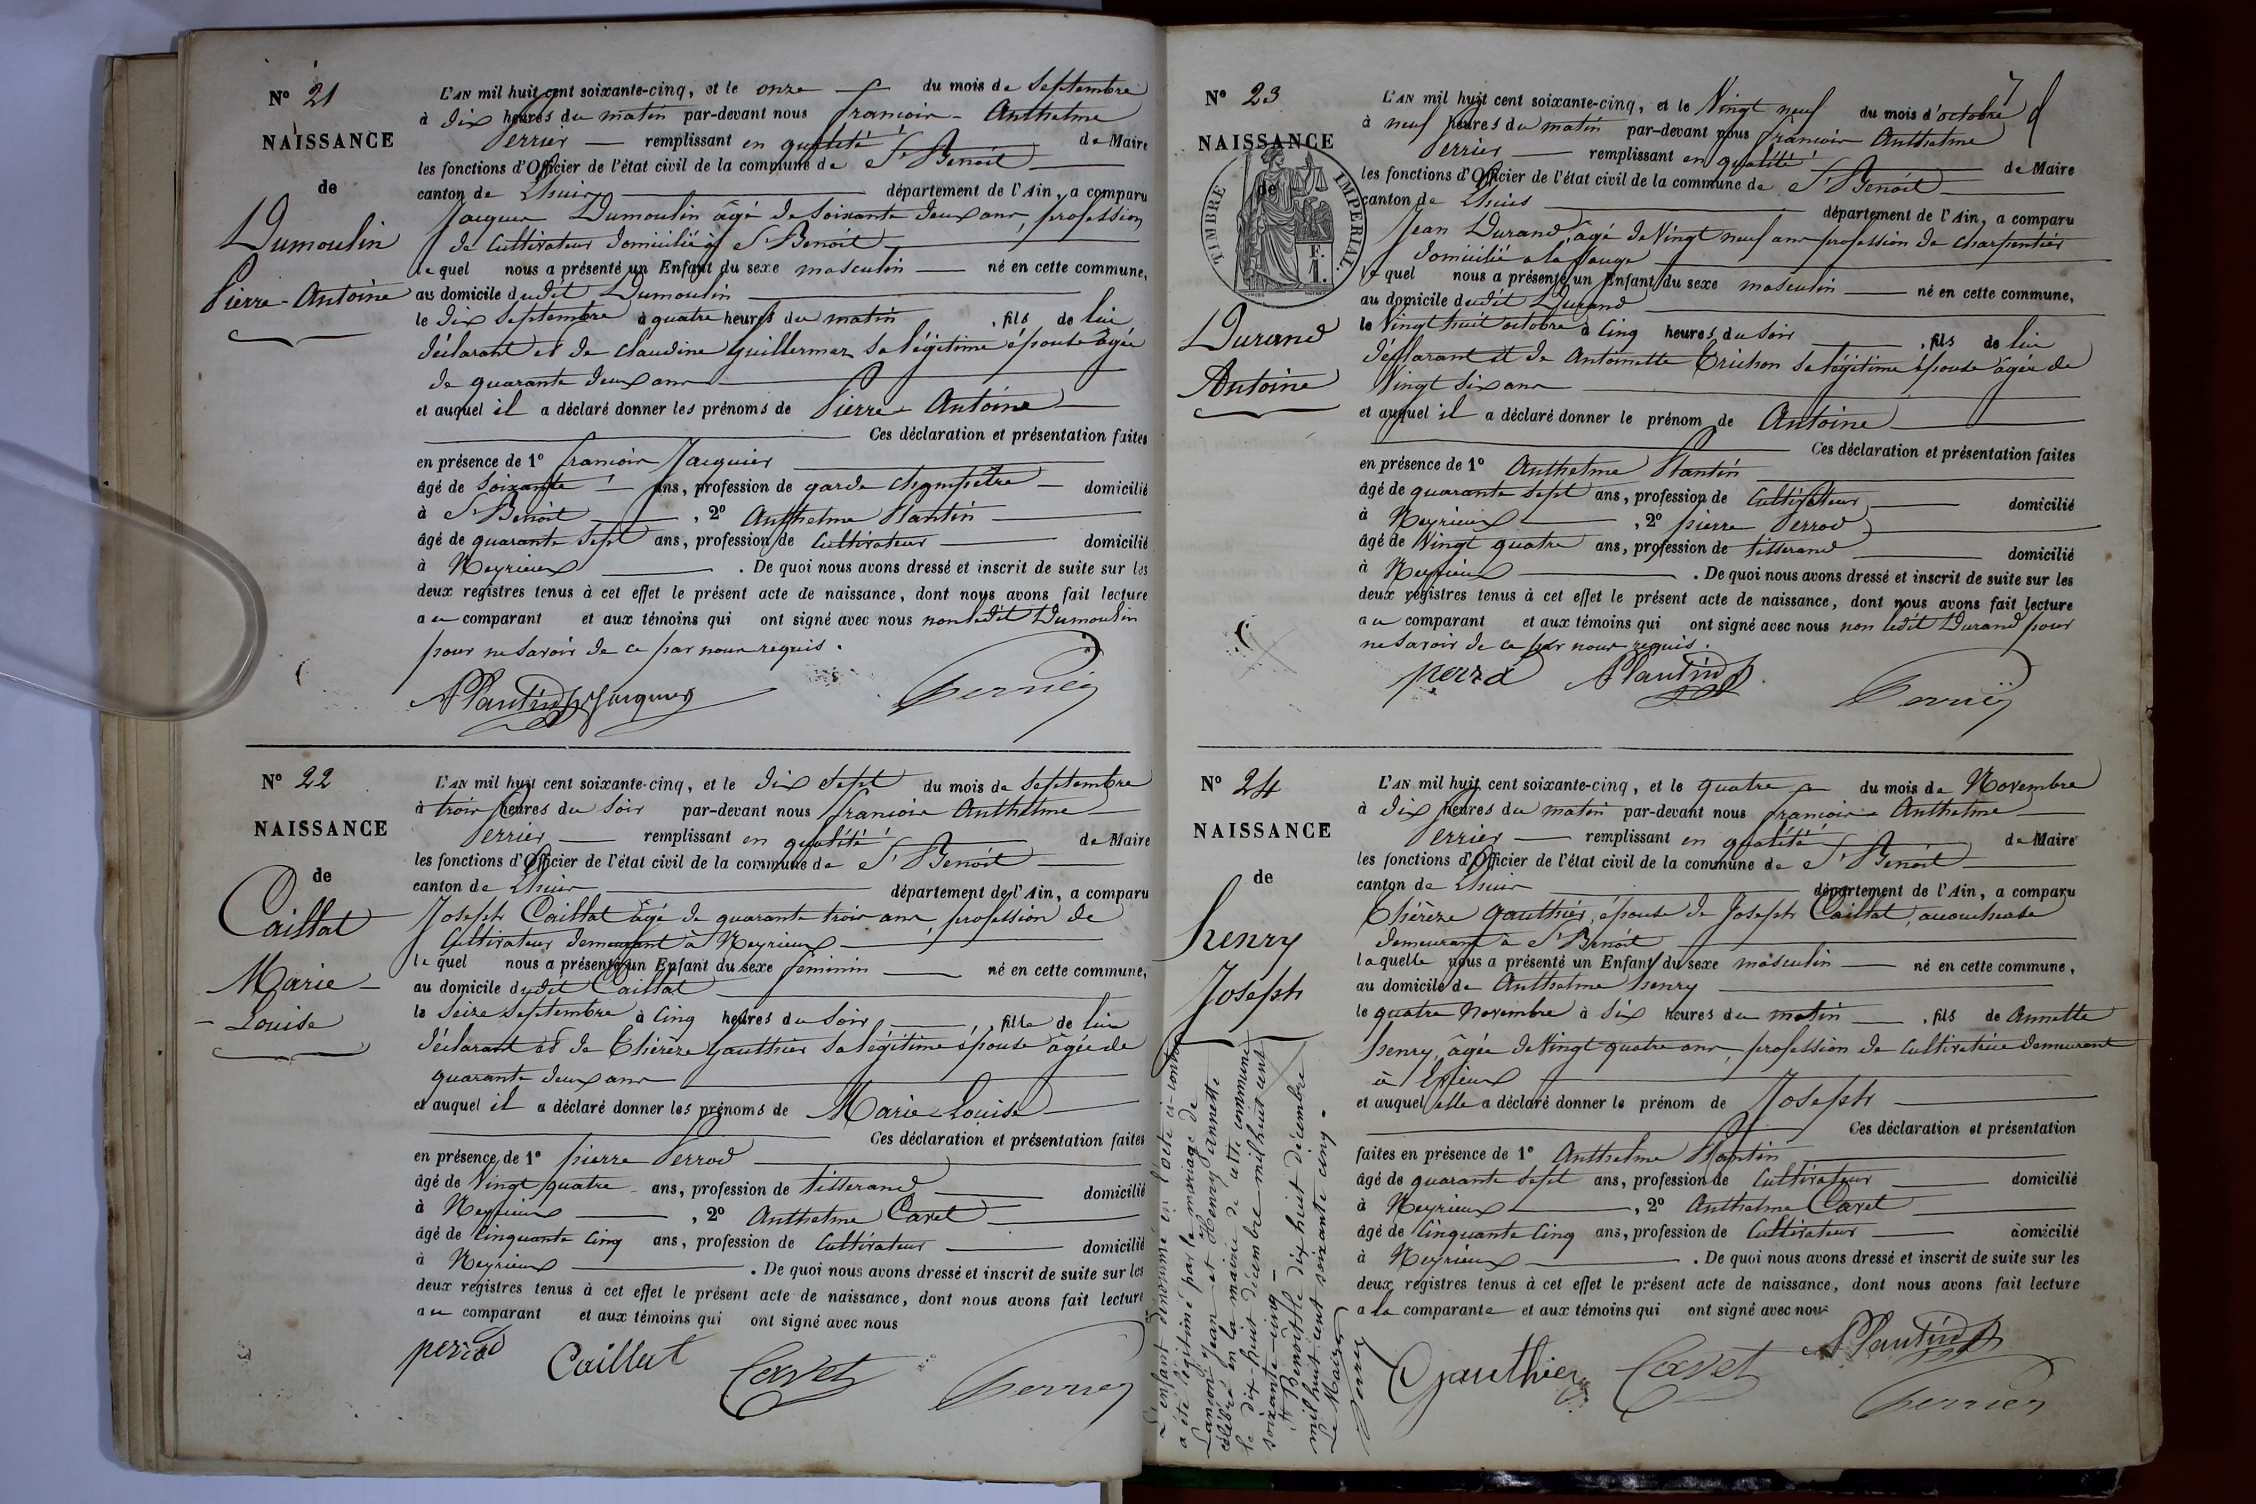 N° 21
NAISSANCE
de
Dumoulin
Pierre-Antoine
L'AN mil huit cent soixante-cinq, et le onze du mois de Septembre
à dix heures du matin par-devant nous françois - Anthelme
Perrier remplissant en qualité de Maire
les fonctions d'Officier de l'état civil de la commune de St Benoit
canton de Lhuis département de l'Ain, a comparu
Jacques Dumoulin âgé de soixante deux ans, profession
de Cultivateur domicilié à St Benoit
lequel nous a présenté un Enfant du sexe masculin né en cette commune,
au domicile dudit Dumoulin
le dix Septembre à quatre heures du matin, fils de lui
déclarant et de Claudine Guillermaz sa légitime épouse âgée
de quarante deux ans
et auquel il a déclaré donner les prénoms de Pierre - Antoine
Ces déclaration et présentation faites
en présence de 1° françois Jacquier
âgé de Soixante ans, profession de garde champêtre domicilié
à St Benoit, 2° Anthelme Plantin
âgé de quarante Sept ans, profession de Cultivateur domicilié
à Meyrieux. De quoi nous avons dressé et inscrit de suite sur les
deux registres tenus à cet effet le présent acte de naissance, dont nous avons fait lecture
au comparant et aux témoins qui ont signé avec nous non ledit Dumoulin
pour ne savoir de ce par nous requis.
APlantin Jacquier Perrier
N° 22
NAISSANCE
de
Caillat
Marie -
- Louise
L'AN mil huit cent soixante-cinq, et le dix Sept du mois de Septembre
à trois heures du Soir par-devant nous françois Anthelme
Perrier remplissant en qualité de Maire
les fonctions d'Officier de l'état civil de la commune de St Benoit
canton de Lhuis département de l'Ain, a comparu
Joseph Caillat âgé de quarante trois ans, profession de
Cultivateur demeurant à Meyrieux
lequel nous a présenté un Enfant du sexe féminin né en cette commune,
au domicile dudit Caillat
le Seize Septembre à Cinq heures du Soir, fille de lui
déclarant et de Thérèze Gauthier sa légitime épouse âgée de
quarante deux ans
et auquel il a déclaré donner les prénoms de Marie Louise
Ces déclaration et présentation faites
en présence de 1° pierre Perrod
âgé de Vingt quatre ans, profession de tisserand domicilié
à Meyrieux, 2° Anthelme Cavet
âgé de Cinquante Cinq ans, profession de Cultivateur domicilié
à Meyrieux. De quoi nous avons dressé et inscrit de suite sur les
deux registres tenus à cet effet le présent acte de naissance, dont nous avons fait lecture
au comparant et aux témoins qui ont signé avec nous
perrod Caillat Cavet Perrier
7
N° 23
NAISSANCE
de
TIMBRE IMPERIAL
F.
1.
Durand
Antoine
L'AN mil huit cent soixante-cinq, et le Vingt neuf du mois d'octobre
à neuf heures du matin par-devant nous françois Anthelme
Perrier remplissant en qualité de Maire
les fonctions d'Officier de l'état civil de la commune de St Benoit
canton de Lhuis département de l'Ain, a comparu
Jean Durand, âgé de Vingt neuf ans profession de charpentier
domicilié a la sauge
lequel nous a présenté un Enfant du sexe masculin né en cette commune,
au domicile dudit Durand
le Vingt huit octobre à Cinq heures du Soir, fils de lui
déclarant et de Antoinette Trichon sa légitime épouse âgée de
Vingt Six ans
et auquel il a déclaré donner le prénom de Antoine
Ces déclaration et présentation faites
en présence de 1° Anthelme Plantin
âgé de quarante Sept ans, profession de Cultivateur domicilié
à Meyrieux, 2° pierre Perrod
âgé de Vingt quatre ans, profession de tisserand domicilié
à Meyrieux. De quoi nous avons dressé et inscrit de suite sur les
deux registres tenus à cet effet le présent acte de naissance, dont nous avons fait lecture
au comparant et aux témoins qui ont signé avec nous non ledit Durand pour
ne savoir de ce par nous requis.
perrod APlantin Perrier
N° 24
NAISSANCE
de
henry
Joseph
L'AN mil huit cent soixante-cinq, et le quatre du mois de Novembre
à dix heures du matin par-devant nous françois - Anthelme
Perrier remplissant en qualité de Maire
les fonctions d'Officier de l'état civil de la commune de St Benoit
canton de Lhuis département de l'Ain, a comparu
Thérèze Gauthier, épouse de Joseph Caillat, accoucheuse
demeurant à St Benoit
laquelle nous a présenté un Enfant du sexe masculin né en cette commune,
au domicile de Anthelme henry
le quatre Novembre à Six heures du matin, fils de Annette
henry, âgée de Vingt quatre ans, profession de Cultivatrice demeurant
à
et auquel elle a déclaré donner le prénom de Joseph
Ces déclaration et présentation
faites en présence de 1° Anthelme Plantin
âgé de quarante Sept ans, profession de Cultivateur domicilié
à Meyrieux, 2° Anthelme Cavet
âgé de Cinquante Cinq ans, profession de Cultivateur domicilié
à Meyrieux. De quoi nous avons dressé et inscrit de suite sur les
deux registres tenus à cet effet le présent acte de naissance, dont nous avons fait lecture
a la comparante et aux témoins qui ont signé avec nous
Gauthier Cavet APlantin Perrier
L'enfant dénommé en l'acte ci-contre
a été légitimé par le mariage de
Jean et Henry Jeannette
célébré en la mairie de cette commune
le dix huit décembre mil huit cent
soixante-cinq -
St Benoit le dix huit décembre
mil huit cent soixante cinq.
Le Maire
Perrier